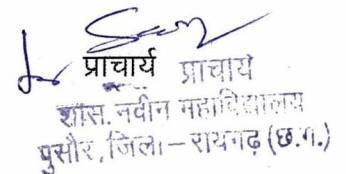 प्राचार्य प्राचार्य
शास. नवीन महाविद्यालय
पुसौर, जिला – रायगढ़ (छ.ग.)